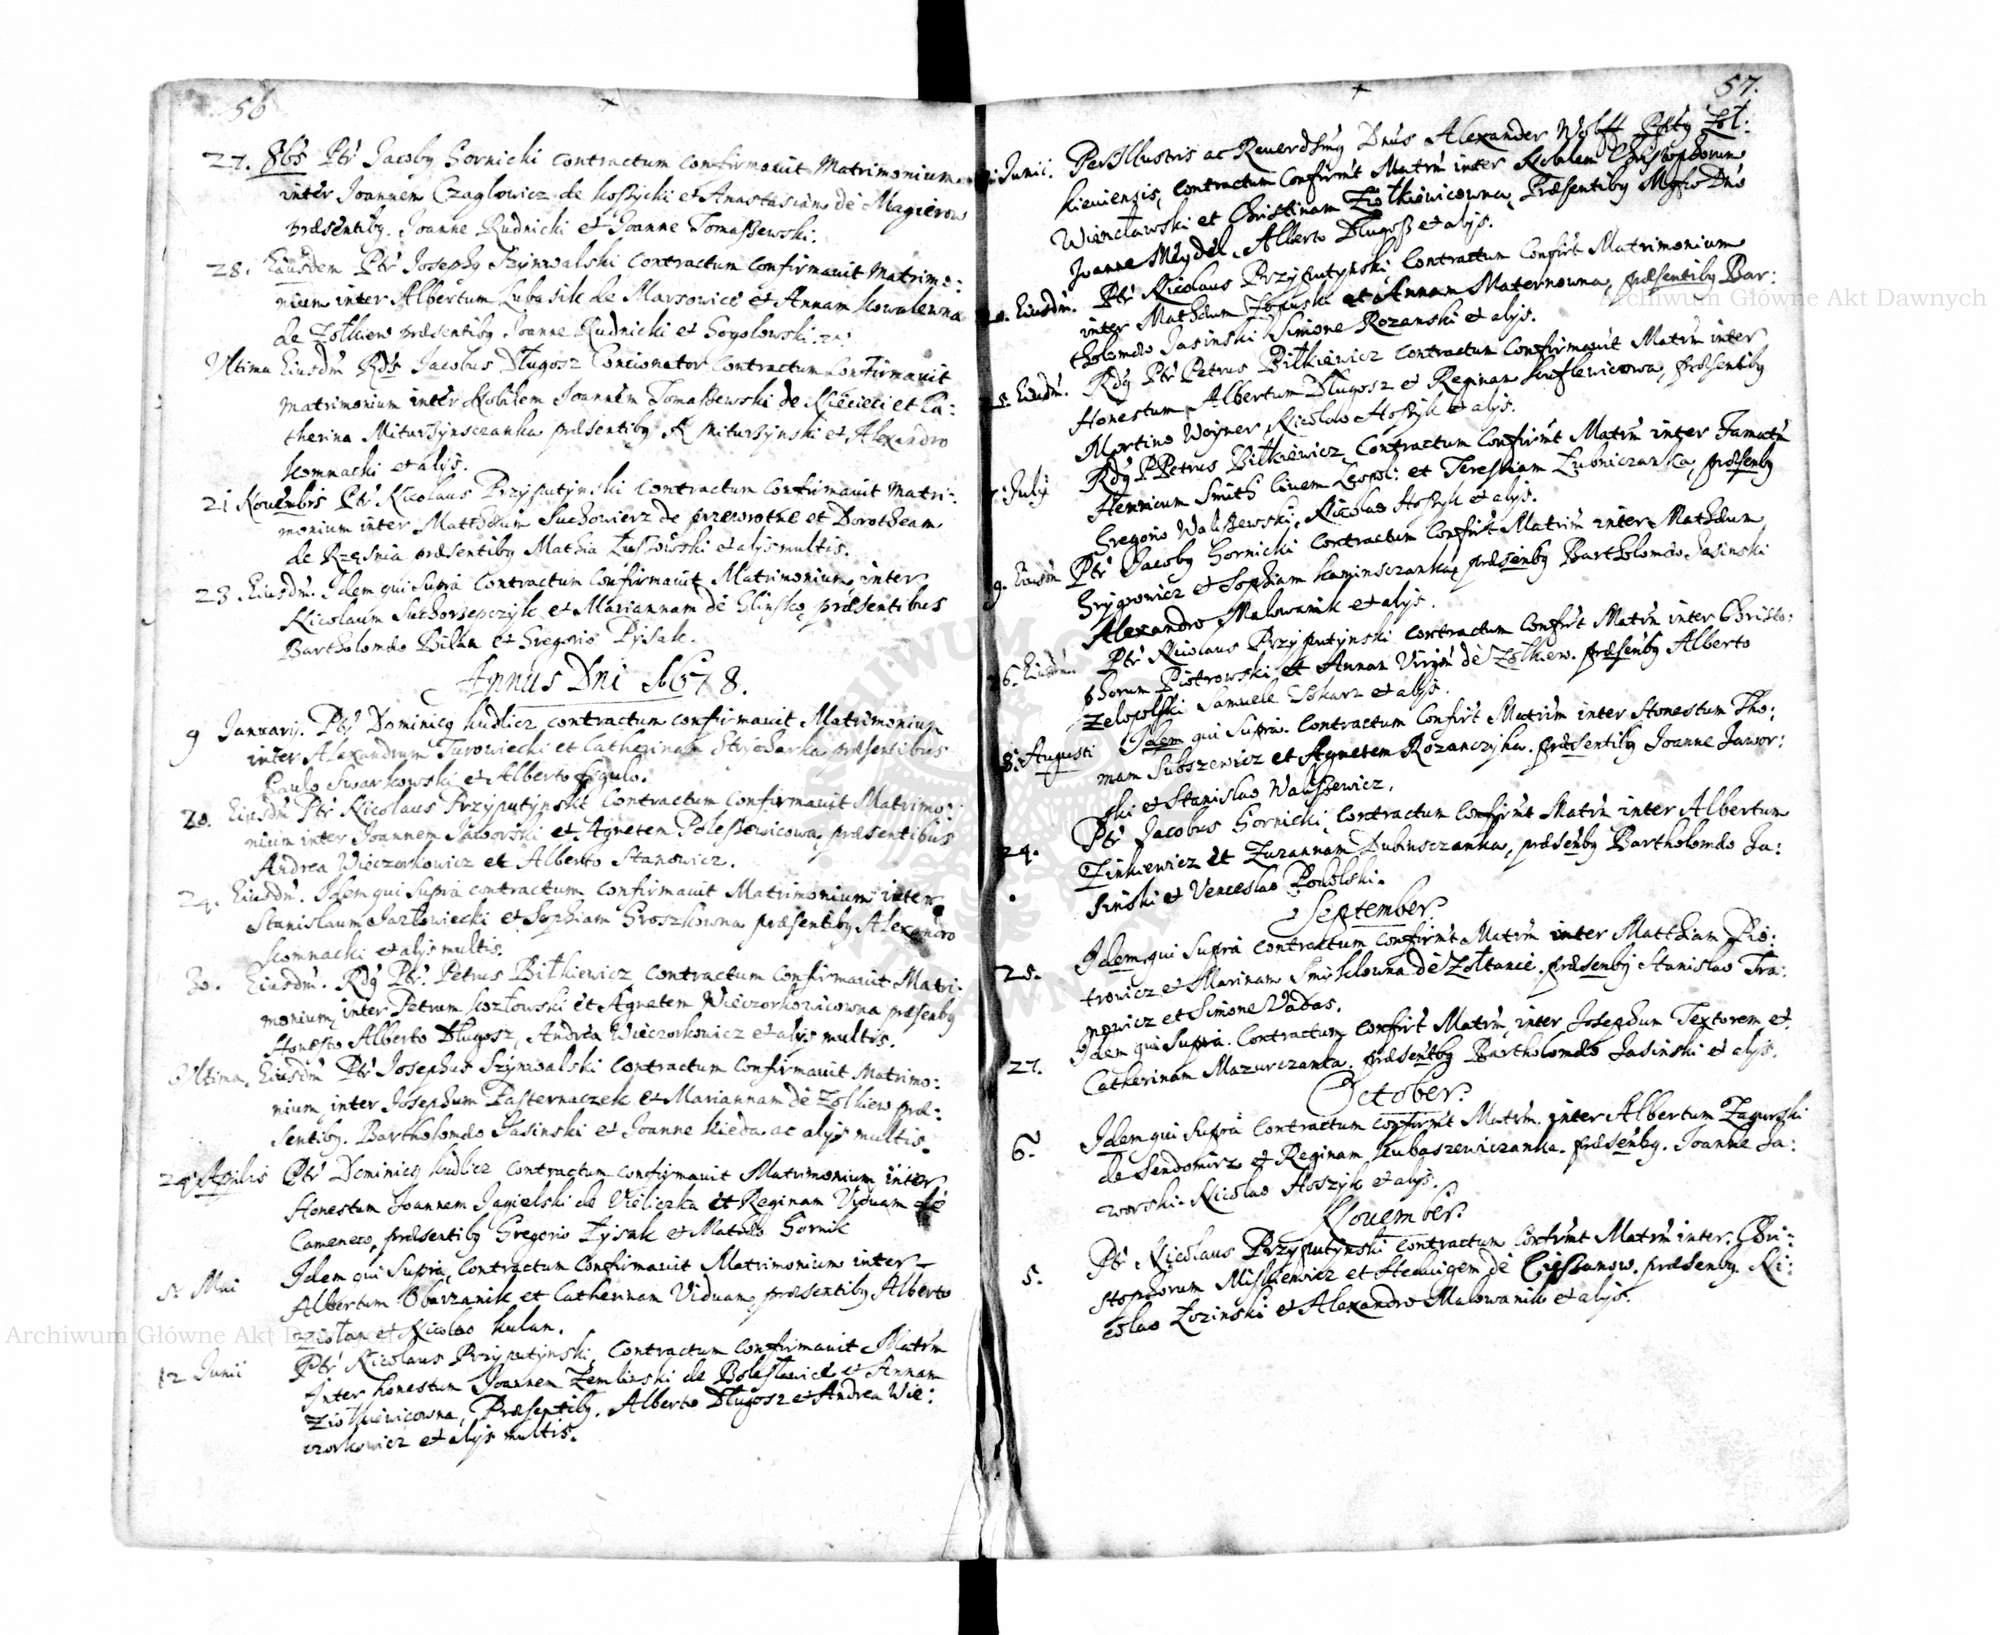 56
27. 8bŕs Ptr Jacoby Gornicki contractum confirmauit Matrimonium
inter Joannem Czaglowicz de Kossycki et Anastasiam de Magierow
præsentiby. Joanne Rudnicki et Joanne Tomaszewski.
28. Eiusdem Ptr Josephy Szynwalski contractum confirmauit matrimo:
nium inter Albertum Lubasik de Marsowice et Annam Kowalewna
de Zolkiew præsentiby Joanne Rudnicki et Gogolowski.
Vltima Eiusdm Rds Jacobus Długosz Concionator contractum confirmauit
matrimonium inter Nobilem Joannem Tomaszewski de Niecieci et Ca:
therina Miturzynsczanka præsentiby A Miturzynski et Alexandro
Komnacki et alijs.
21 Nouembris Ptr Nicolaus Przyputynski contractum confirmauit matri:
monium inter Matthæum Suchowierz de przewrotne et Dorotheam
de Rzęsnia præsentiby Mathia Luszowski et alijs multis.
23 Eiusdm. Idem qui supra contractum confirmauit Matrimonium inter
Nicolaum Suchorzepczyk et Mariannam de Glinsko præsentibus
Bartholomæo Bilka et Gregorio Pysak.
Annus Dni 1678.
9 Januarij. Ptr Dominicy Kudlicz contractum confirmauit Matrimonium
inter Alexandrum Turowiecki et Catherinam Strycharka præsentibus
Paulo Swarkowski et Alberto figulo.
20. Eiusdm Ptr Nicolaus Przyputynski contractum confirmauit Matrimo:
nium inter Joannem Jaworski et Agnetem Poleszowicowa præsentibus
Andrea Wieczorkowicz et Alberto Stanowicz.
24. Eiusdm. Idem qui supra contractum confirmauit Matrimonium inter
Stanislaum Jazłowiecki et Sophiam Groszkowna præsentiby Alexandro
Komnacki et alijs multis.
30. Eiusdm. Rdy Ptr. Petrus Biłkiewicz contractum confirmauit Matri:
monium inter Petrum Kozłowski et Agnetem Wieczorkowicowna præsenby
Honesto Alberto Długosz, Andrea Wieczorkowicz et alijs multis.
Vltima, Eiusdm Ptr Josephus Szynwalski contractum confirmauit Matrimo:
nium inter Josephum Pasternaczek et Mariannam de Zolkiew præ:
sentiby. Bartholomæo Jasinski et Joanne Kieda ac alijs multis.
24 Aprilis Ptr Dominicy Kudlicz contractum confirmauit Matrimonium inter
Honestum Joannem Jagielski de Vieliczka et Reginam Viduam de
Camenec, præsentiby Gregorio Zysak et Matheo Gornik
5. Mai Idem qui supra, Contractum Confirmauit Matrimonium inter
Albertum Obarzanik et Catherinam Viduam, præsentiby Alberto
Ziołan et Nicolao Kulan.
12 Junii Ptr Nicolaus Przyputynski, Contractum confirmauit Matrm
Inter honestum Joannem Zemlinski de Bolesławice et Annam
Ziołkiewicowna, Præsentiby. Alberto Długosz et Andrea Wie:
czorkowicz et alijs multis.
57.
Junii. Perillustris ac Reuerdsimy Dnus Alexander Wolff Psty Zoł:
kieuiensis, contractum Confirmt Matrm inter Nobilem Christophorum
Wiencławski et Christinam Ziołkiewicowna, Præsentiby Mgfco Dno
Joanne Meydel, Alberto Długosz et alijs.
Eiusdm. Ptr Nicolaus Przyputynski, Contractum Confirt Matrimonium
inter Mathæum et Annam Maternowna, præsentiby Bar:
tholomæo Jasinski Simone Rozanski et alijs.
Eiusdm. Rdy Ptr Petrus Biłkiewicz contractum confirmauit Matrm inter
Honestum Albertum Długosz et Reginam Kuflewicowa, præsentiby
Martino Woyner, Nicolao Hoszyk et alijs.
July Rdy P Petrus Biłkiewicz, Contractum Confirmt Matrm inter Famatm
Hemnicum Smith Ciuem Leopol: et Teresiam Lubniczanka, præsenby
Gregorio Waliszewski, Nicolao Hoszyk et alijs.
9. Eiusdm Ptr Jacoby Gornicki contractum Confirt Matrim inter Mathæum
Grygrowicz et Sophiam Kaminsczanka, præsenby Bartholomæo Jasinski
Alexandro Malowanik et alijs.
6. Eiusdm. Ptr Nicolaus Przyputynski contractum Confirt Matrm inter Christo:
phorum Piotrowski, et Annam Virgm de Zolkiew. præsenby Alberto
Zelopolski Samuele Tokarz et alijs.
8. Augusti Idem qui supra. Contractum Confirt Matrim inter Honestum Tho:
mam Subszewicz et Agnetem Rozanczyka. præsentiby Joanne Jawor:
ski et Stanislao Waliszewicz.
24. Ptr Jacobus Gornicki, contractum confirmt Matrm inter Albertum
Zinkiewicz et Zuzannam Dubinsczanka, præsenby Bartholomæo Ja:
sinski et Venceslao Podolski.
September.
25. Idem qui supra contractum confirmt Matrm inter Matthiam Pio:
trowicz et Marinam Smyklowna de Zołtance. præsenby Stanislao Tra:
nowicz et Simone Vadas.
27. Idem qui supra. Contractum confirt Matrm, inter Josephum Textorem et
Catherinam Mazurczanka. præsentby Bartholomæo Jasinski et alijs.
October.
6. Idem qui supra contractum confirmt Matrm. inter Albertum Zagurski
de Sendomirz et Reginam Kubaszewiczanka. præsenby. Joanne Ja:
worski. Nicolao Hoszyk et alijs.
Nouember.
5. Ptr Nicolaus Przyputynski contractum Confirmt Matrm inter. Chri:
stophorum Miskiewicz et Heduigem de Cieszanow. præsenby. Ni:
colao Lozinski et Alexandro Malowanik et alijs.
Archiwum Główne Akt Dawnych
Archiwum Główne Akt Dawnych